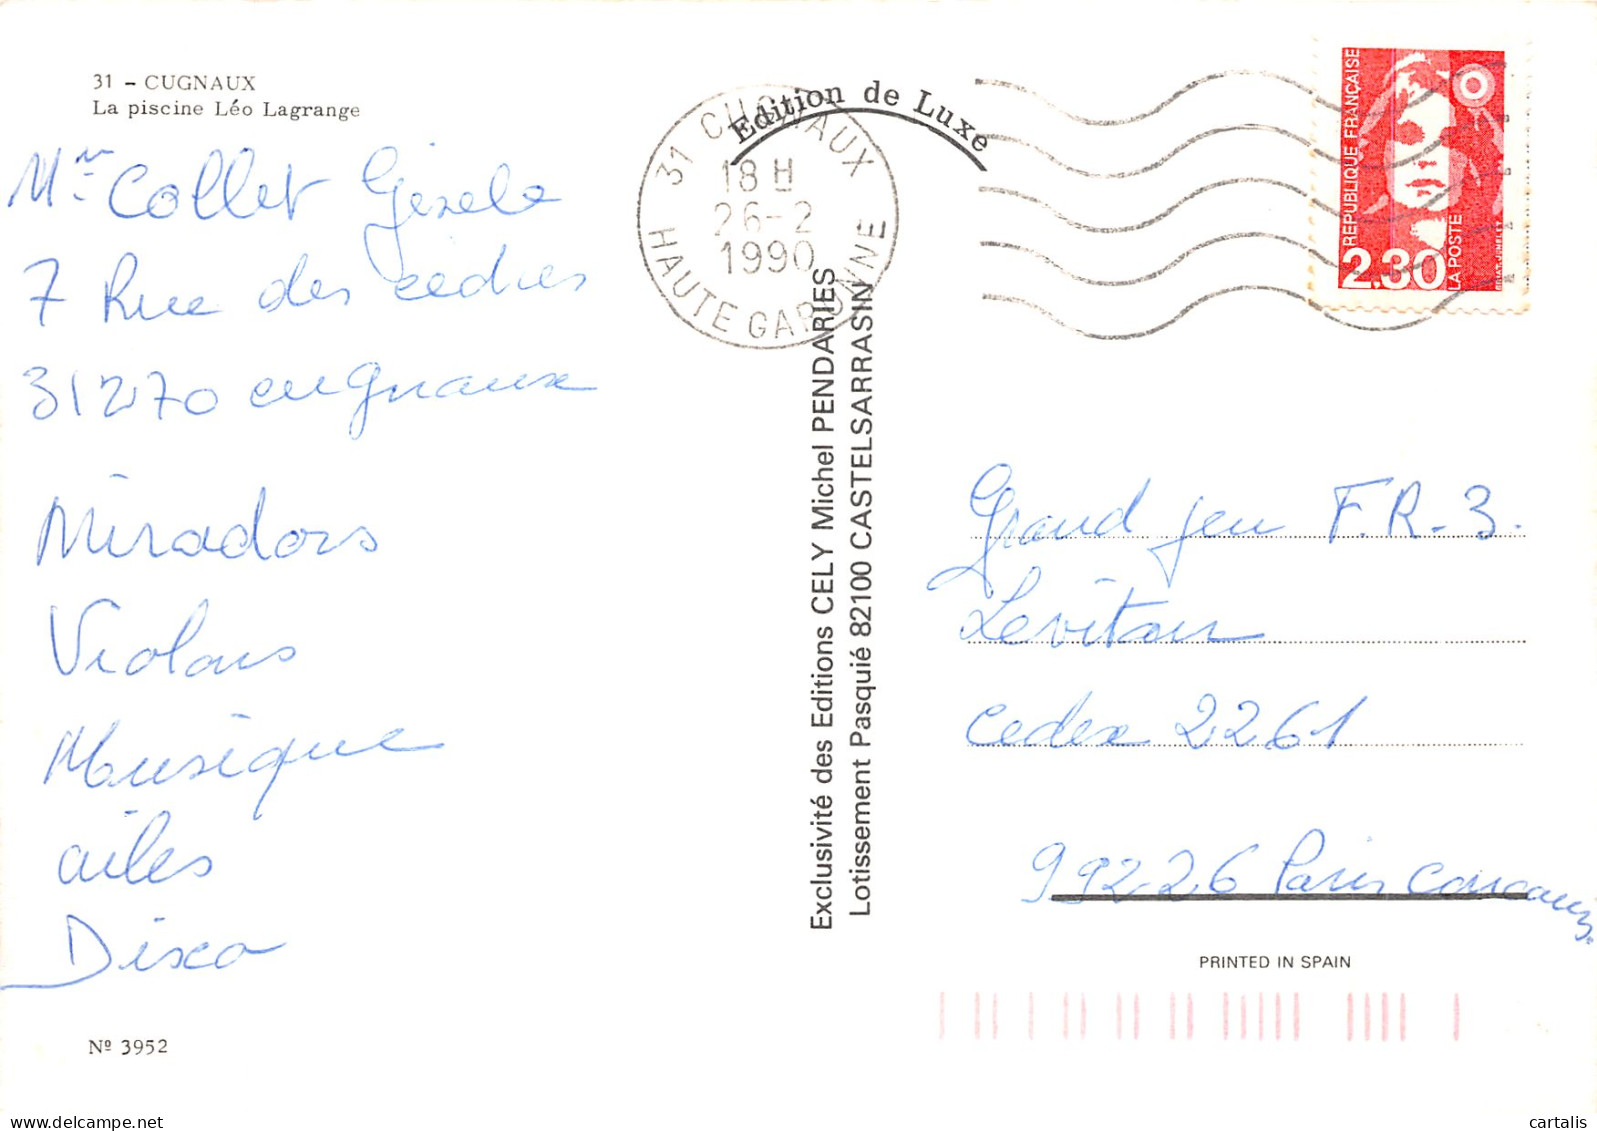 31 - CUGNAUX
La piscine Léo Lagrange
Mme Collet Gisele
7 Rue des cedres
31270 cugnaux
Miradors
Violons
Musique
ailes
Disco
Nº 3952
Edition de Luxe
31 CUGNAUX
18 H
26-2
1990
HAUTE GARONNE
Exclusivité des Editions CELY Michel PENDARIES
Lotissement Pasquié 82100 CASTELSARRASIN
REPUBLIQUE FRANÇAISE
2,30
LA POSTE
Grand jeu F.R-3.
Levitan
Cedex 2261
99226 Paris Concours
PRINTED IN SPAIN
cartalis